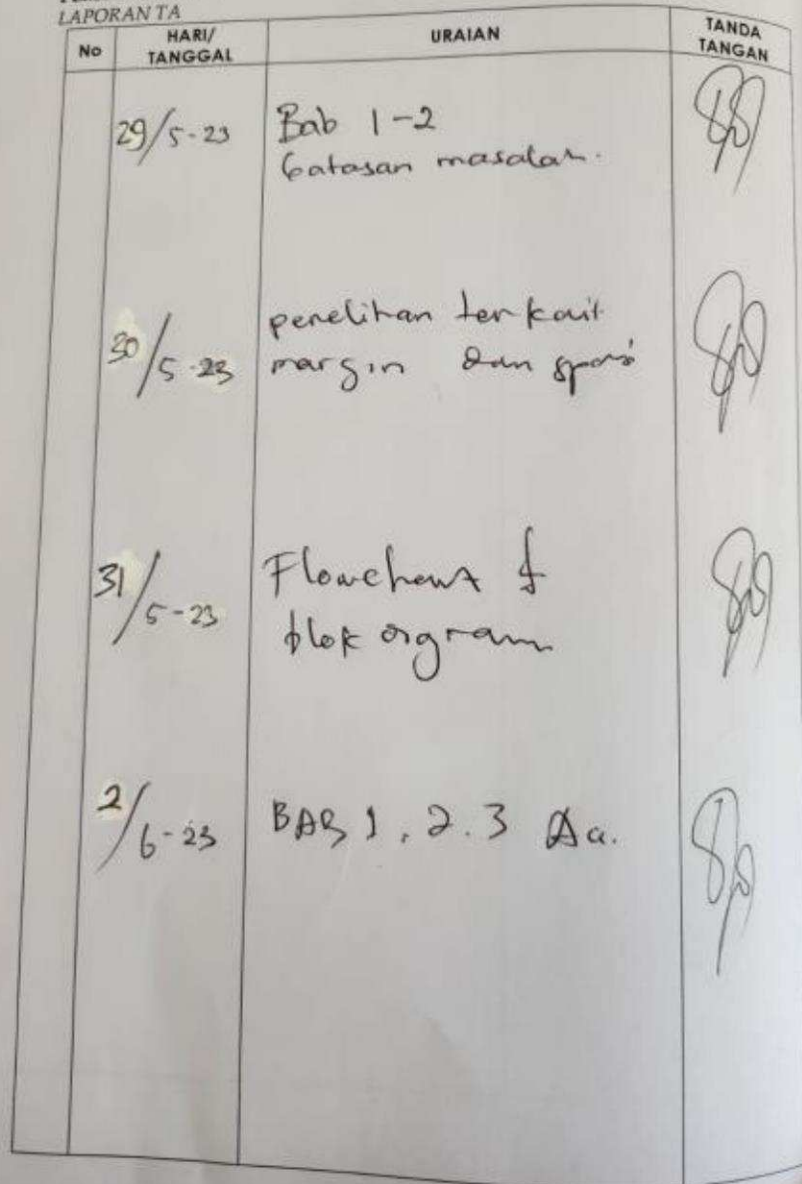 LAPORAN TA
No HARI/ TANGGAL URAIAN TANDA TANGAN
29/5-23 Bab 1-2
batasan masalah.
30/5-23 penelitian terkait
margin dan
31/5-23 Flowchart &
blok
2/6-23 BAB 1, 2. 3